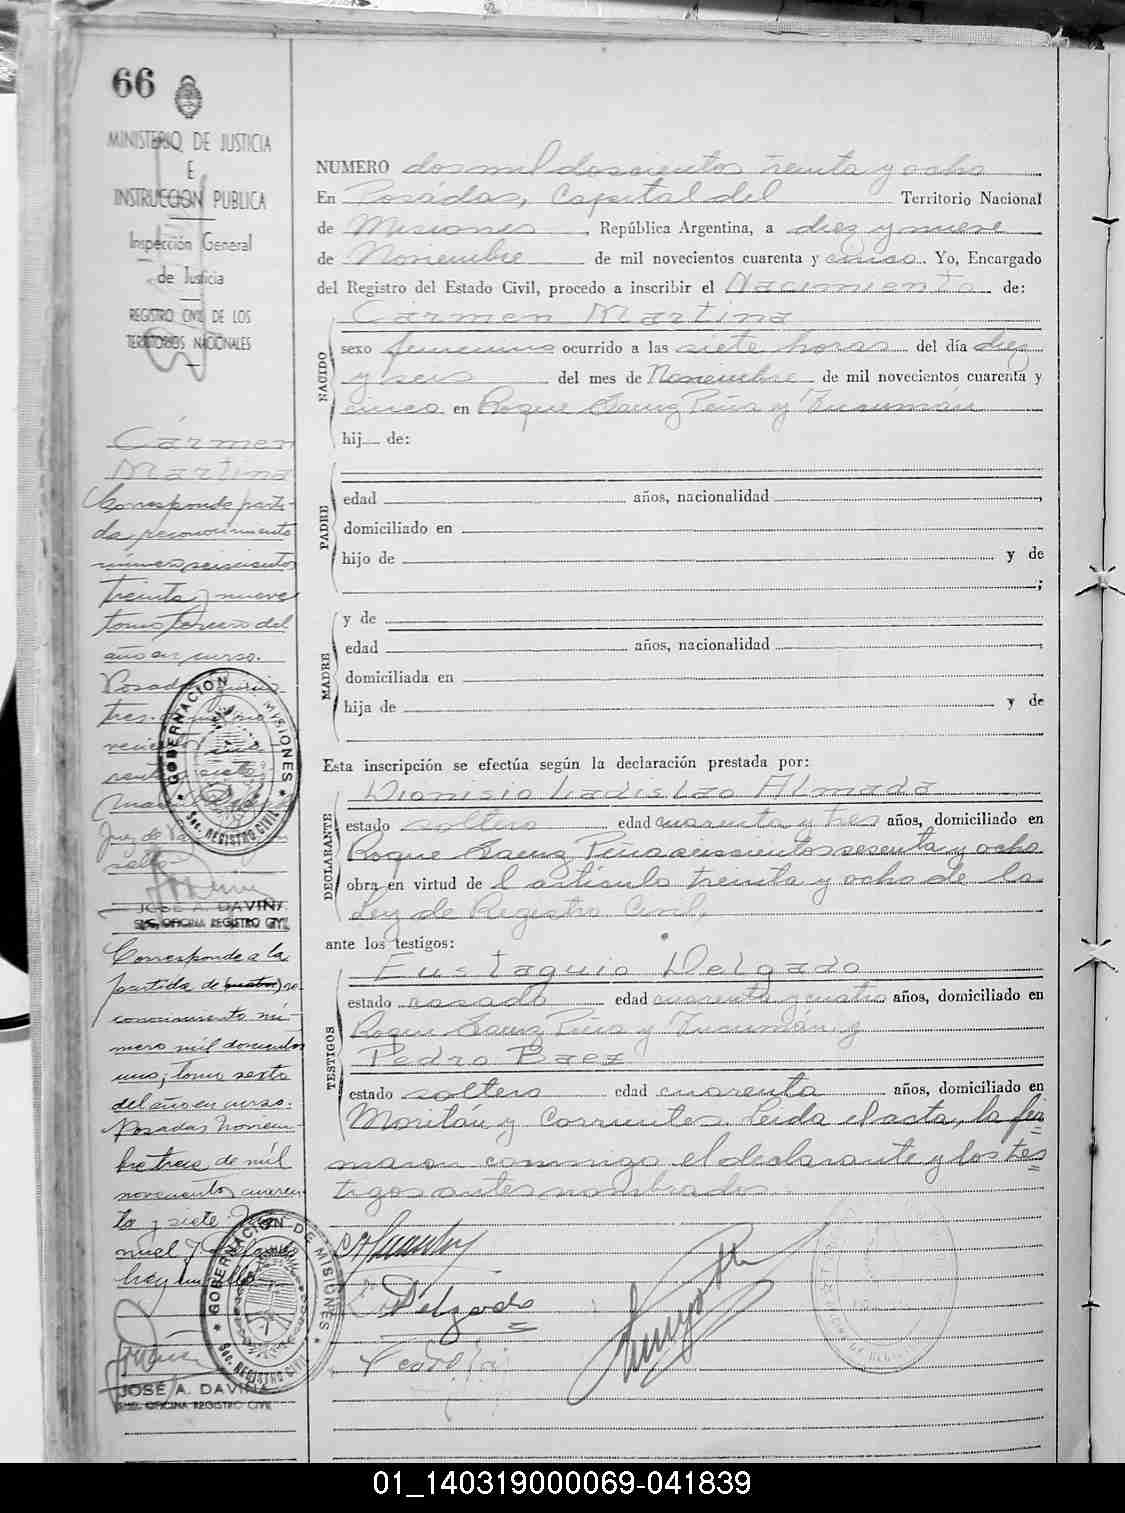 66
MINISTERIO DE JUSTICIA
E
INSTRUCCION PUBLICA
Inspección General
de Justicia
REGISTRO CIVIL DE LOS
TERRITORIOS NACIONALES
Cármen
Martina
Corresponde parti-
da reconocimiento
número seiscientos
treinta y nueve
tomo tercero del
año en curso.
Posadas Junio
tres
GOBERNACION MISIONES
Sec. REGISTRO CIVIL
Juez de
JOSE A. DAVIÑA
SUC. OFICINA REGISTRO CIVIL
Corresponde a la
partida de (cuatro) re-
conocimiento nú-
mero mil doscientos
uno, tomo sexto
del año en curso.
Posadas Noviem-
bre trece de mil
novecientos cuaren-
ta y siete.
nuel J.
GOBERNACION DE MISIONES
Sec. REGISTRO CIVIL
JOSE A. DAVIÑA
SUC. OFICINA REGISTRO CIVIL
NUMERO dos mil doscientos treinta y ocho
En Posádas, Capital del Territorio Nacional
de Misiones, República Argentina, a diez y nueve
de Noviembre de mil novecientos cuarenta y cinco. Yo, Encargado
del Registro del Estado Civil, procedo a inscribir el Nacimiento de:
NACIDO
Cármen Martina
sexo femenino ocurrido a las siete horas del día diez
y seis del mes de Noviembre de mil novecientos cuarenta y
cinco en Roque Saenz Peña y Tucuman
hij de:
PADRE
edad años, nacionalidad ,
domiciliado en
hijo de y de
;
MADRE
y de
edad años, nacionalidad ,
domiciliada en
hija de y de
Esta inscripción se efectúa según la declaración prestada por:
DECLARANTE
Dionisio Ladislao Almada
estado soltero edad cuarenta y tres años, domiciliado en
Roque Saenz Peña seiscientos sesenta y ocho
obra en virtud de l artículo treinta y ocho de la
Ley de Registro Civil,
ante los testigos:
TESTIGOS
Eustaquio Delgado
estado casado edad cuarenta y cuatro años, domiciliado en
Roque Saenz Peña y Tucumán y
Pedro Baez
estado soltero edad cuarenta años, domiciliado en
Moritán y Corrientes. Leida el acta, la fir
maron conmigo el declarante y los tes
tigos antes nombrados.
Delgado
01_140319000069-041839